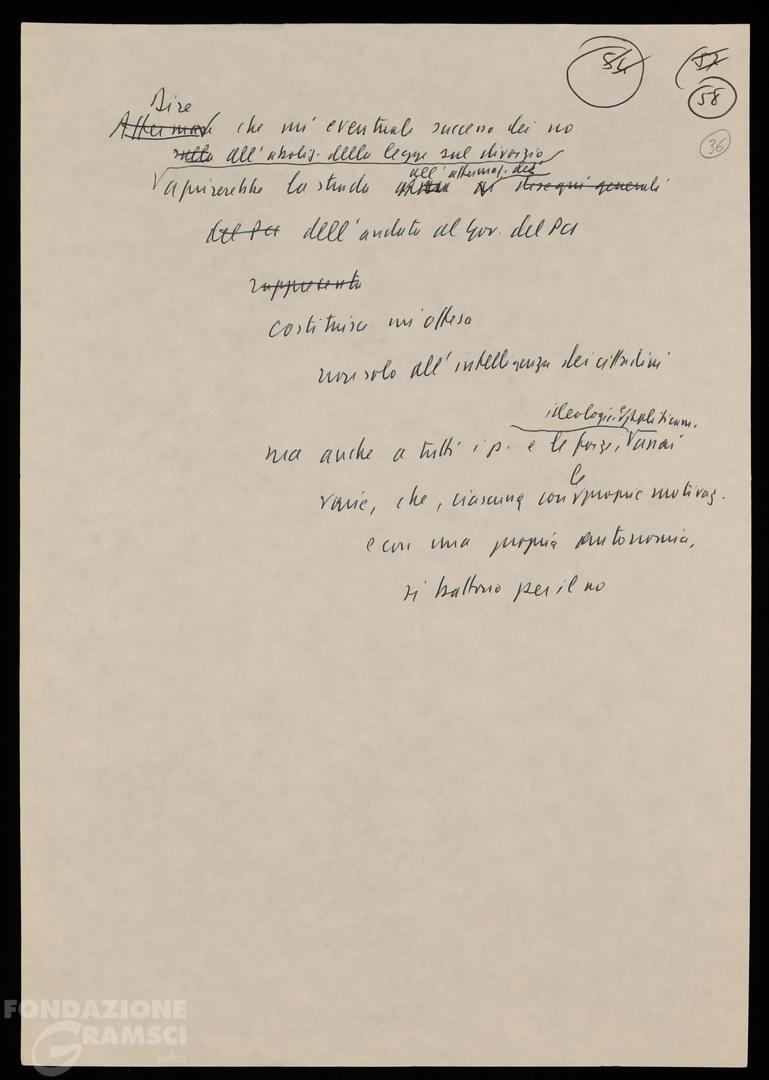 54 57
58
36
Dire
Affermare che un eventuale successo dei no
sulla all'aboliz. della legge sul divorzio
all'affermaz. dei
aprirerebbe la strada disegni generali
del Pci dell'andata al Gov. del Pci
rappresenta
costituisce un'offesa
non solo all'intelligenza dei cittadini
ideologic. e politicam.
ma anche a tutti i p. e le forze,
le
varie, che, ciascuna con proprie motivaz.
e con una propria autonomia,
si battono per il no
FONDAZIONE
GRAMSCI
onlus